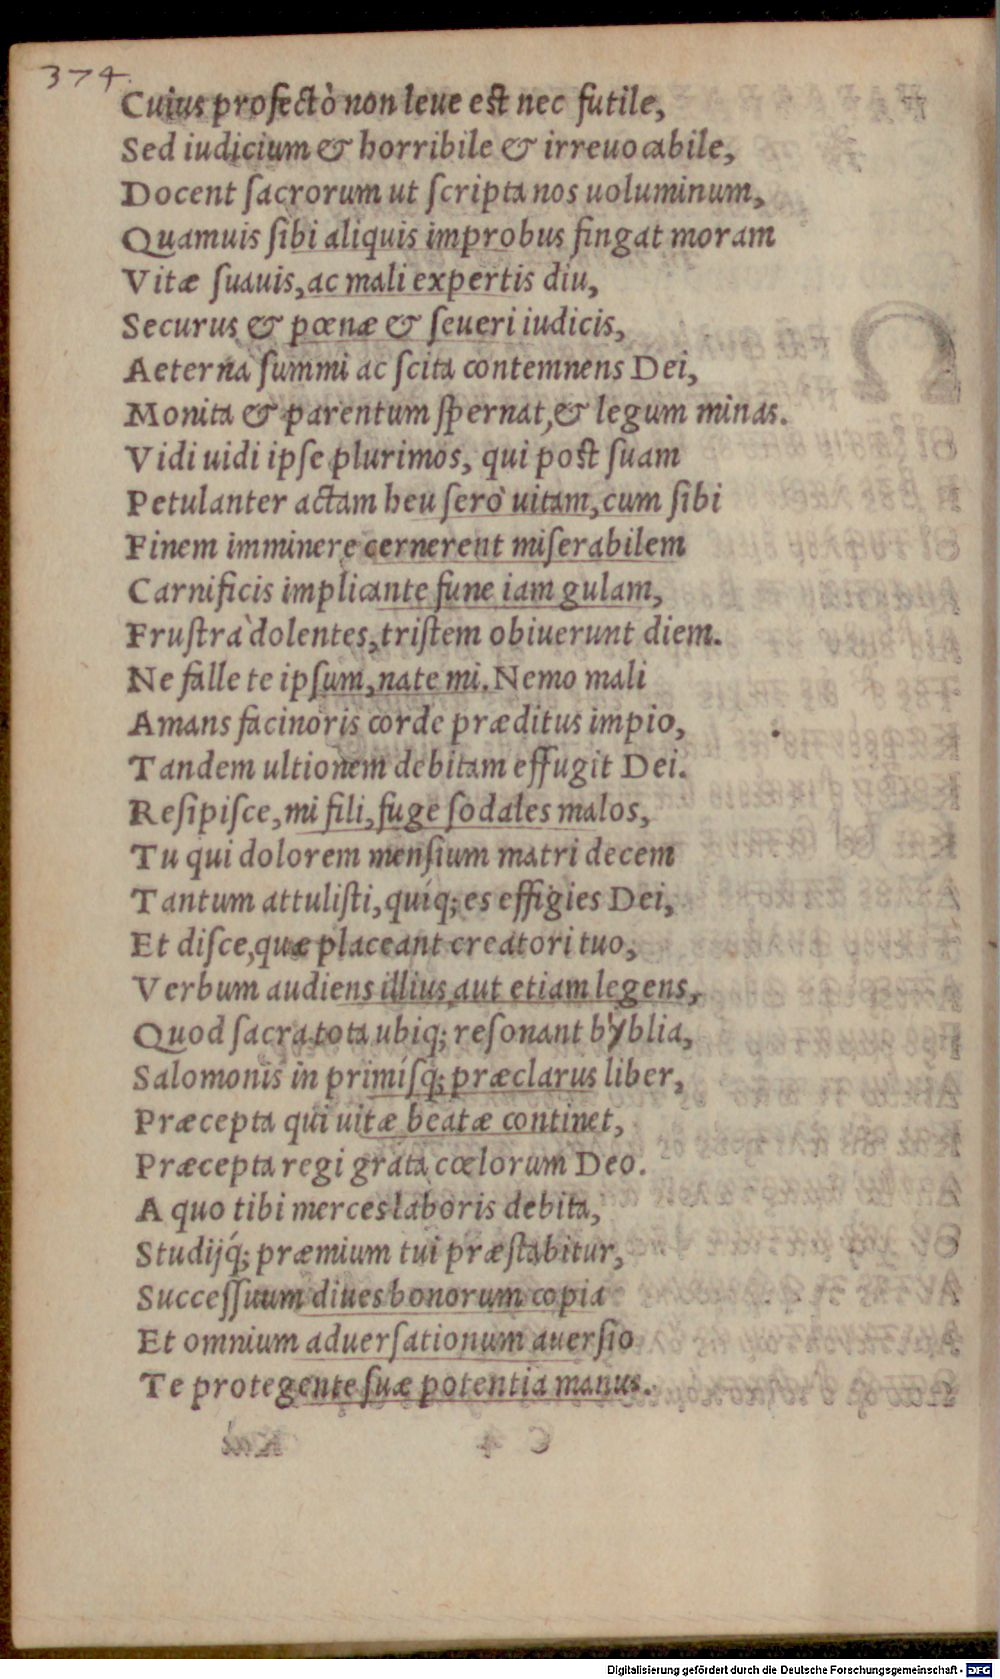 374.
Cuius profectò non leue est nec futile,
Sed iudicium & horribile & irreuocabile,
Docent sacrorum ut scripta nos uoluminum,
Quamuis sibi aliquis improbus fingat moram
Vitæ suauis, ac mali expertis diu,
Securus & pœnæ & seueri iudicis,
Aeterna summi ac scita contemnens Dei,
Monita & parentum spernat, & legum minas.
Vidi uidi ipse plurimos, qui post suam
Petulanter actam heu serò uitam, cum sibi
Finem imminere cernerent miserabilem
Carnificis implicante fune iam gulam,
Frustrà dolentes, tristem obiuerunt diem.
Ne falle te ipsum, nate mi. Nemo mali
Amans facinoris corde præditus impio,
Tandem ultionem debitam effugit Dei.
Resipisce, mi fili, fuge sodales malos,
Tu qui dolorem mensium matri decem
Tantum attulisti, quíq; es effigies Dei,
Et disce, quæ placeant creatori tuo,
Verbum audiens illius, aut etiam legens,
Quod sacra tota ubiq; resonant byblia,
Salomonis in primísq; præclarus liber,
Præcepta qui uitæ beatæ continet,
Præcepta regi grata cœlorum Deo.
A quo tibi merces laboris debita,
Studijq́; præmium tui præstabitur,
Successuum diues bonorum copia
Et omnium aduersationum auersio
Te protegente suæ potentia manus.
Digitalisierung gefördert durch die Deutsche Forschungsgemeinschaft - DFG